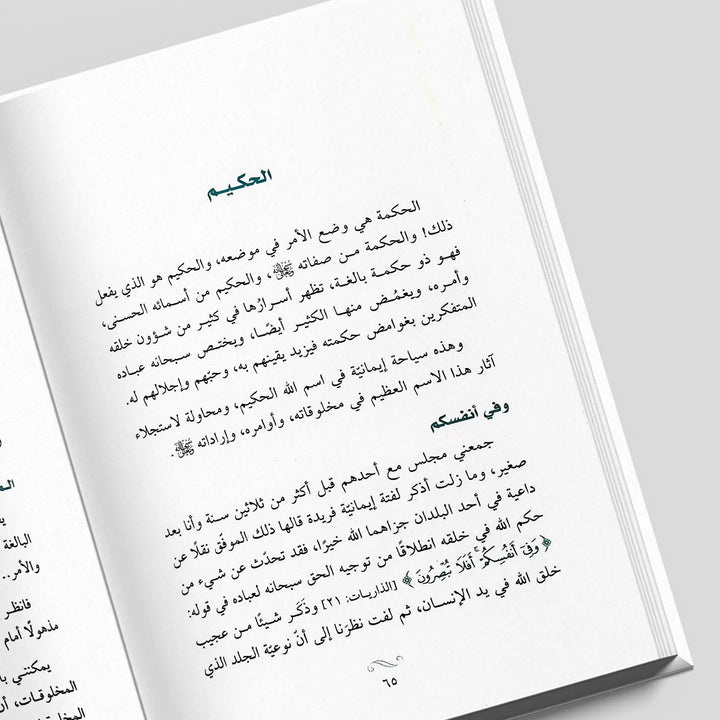 الحكيم
الحكمة هي وضع الأمر في موضعه، والحكيم هو الذي يفعل
ذلك! والحكمة من صفاته ﷻ، والحكيم من أسمائه الحسنى،
فهو ذو حكمة بالغة، تظهر أسرارُها في كثير من شؤون خلقه
وأمره، ويغمُض منها الكثير أيضًا، ويختص سبحانه عباده
المتفكرين بغوامض حكمته فيزيد يقينهم به، وحبّهم وإجلالهم له.
وهذه سياحة إيمانيّة في اسم الله الحكيم، ومحاولة لاستجلاء
آثار هذا الاسم العظيم في مخلوقاته، وأوامره، وإراداته ﷻ.
وفي أنفسكم
جمعني مجلس مع أحدهم قبل أكثر من ثلاثين سنة وأنا بعد
صغير، وما زلت أذكر لفتة إيمانيّة فريدة قالها ذلك الموفّق نقلًا عن
داعية في أحد البلدان جزاهما الله خيرًا، فقد تحدّث عن شيء من
حكم الله في خلقه انطلاقًا من توجيه الحق سبحانه لعباده في قوله:
﴿وَفِي أَنفُسِكُمْ ۚ أَفَلَا تُبْصِرُونَ﴾ [الذاريات: ٢١] وذَكَر شيئًا من عجيب
خلق الله في يد الإنسان، ثم لفت نظرَنا إلى أنّ نوعيّة الجلد الذي
٦٥
البالغة
والأمر..
فانظر
مذهولًا أمام
يمكنني
المخلوقات، أن